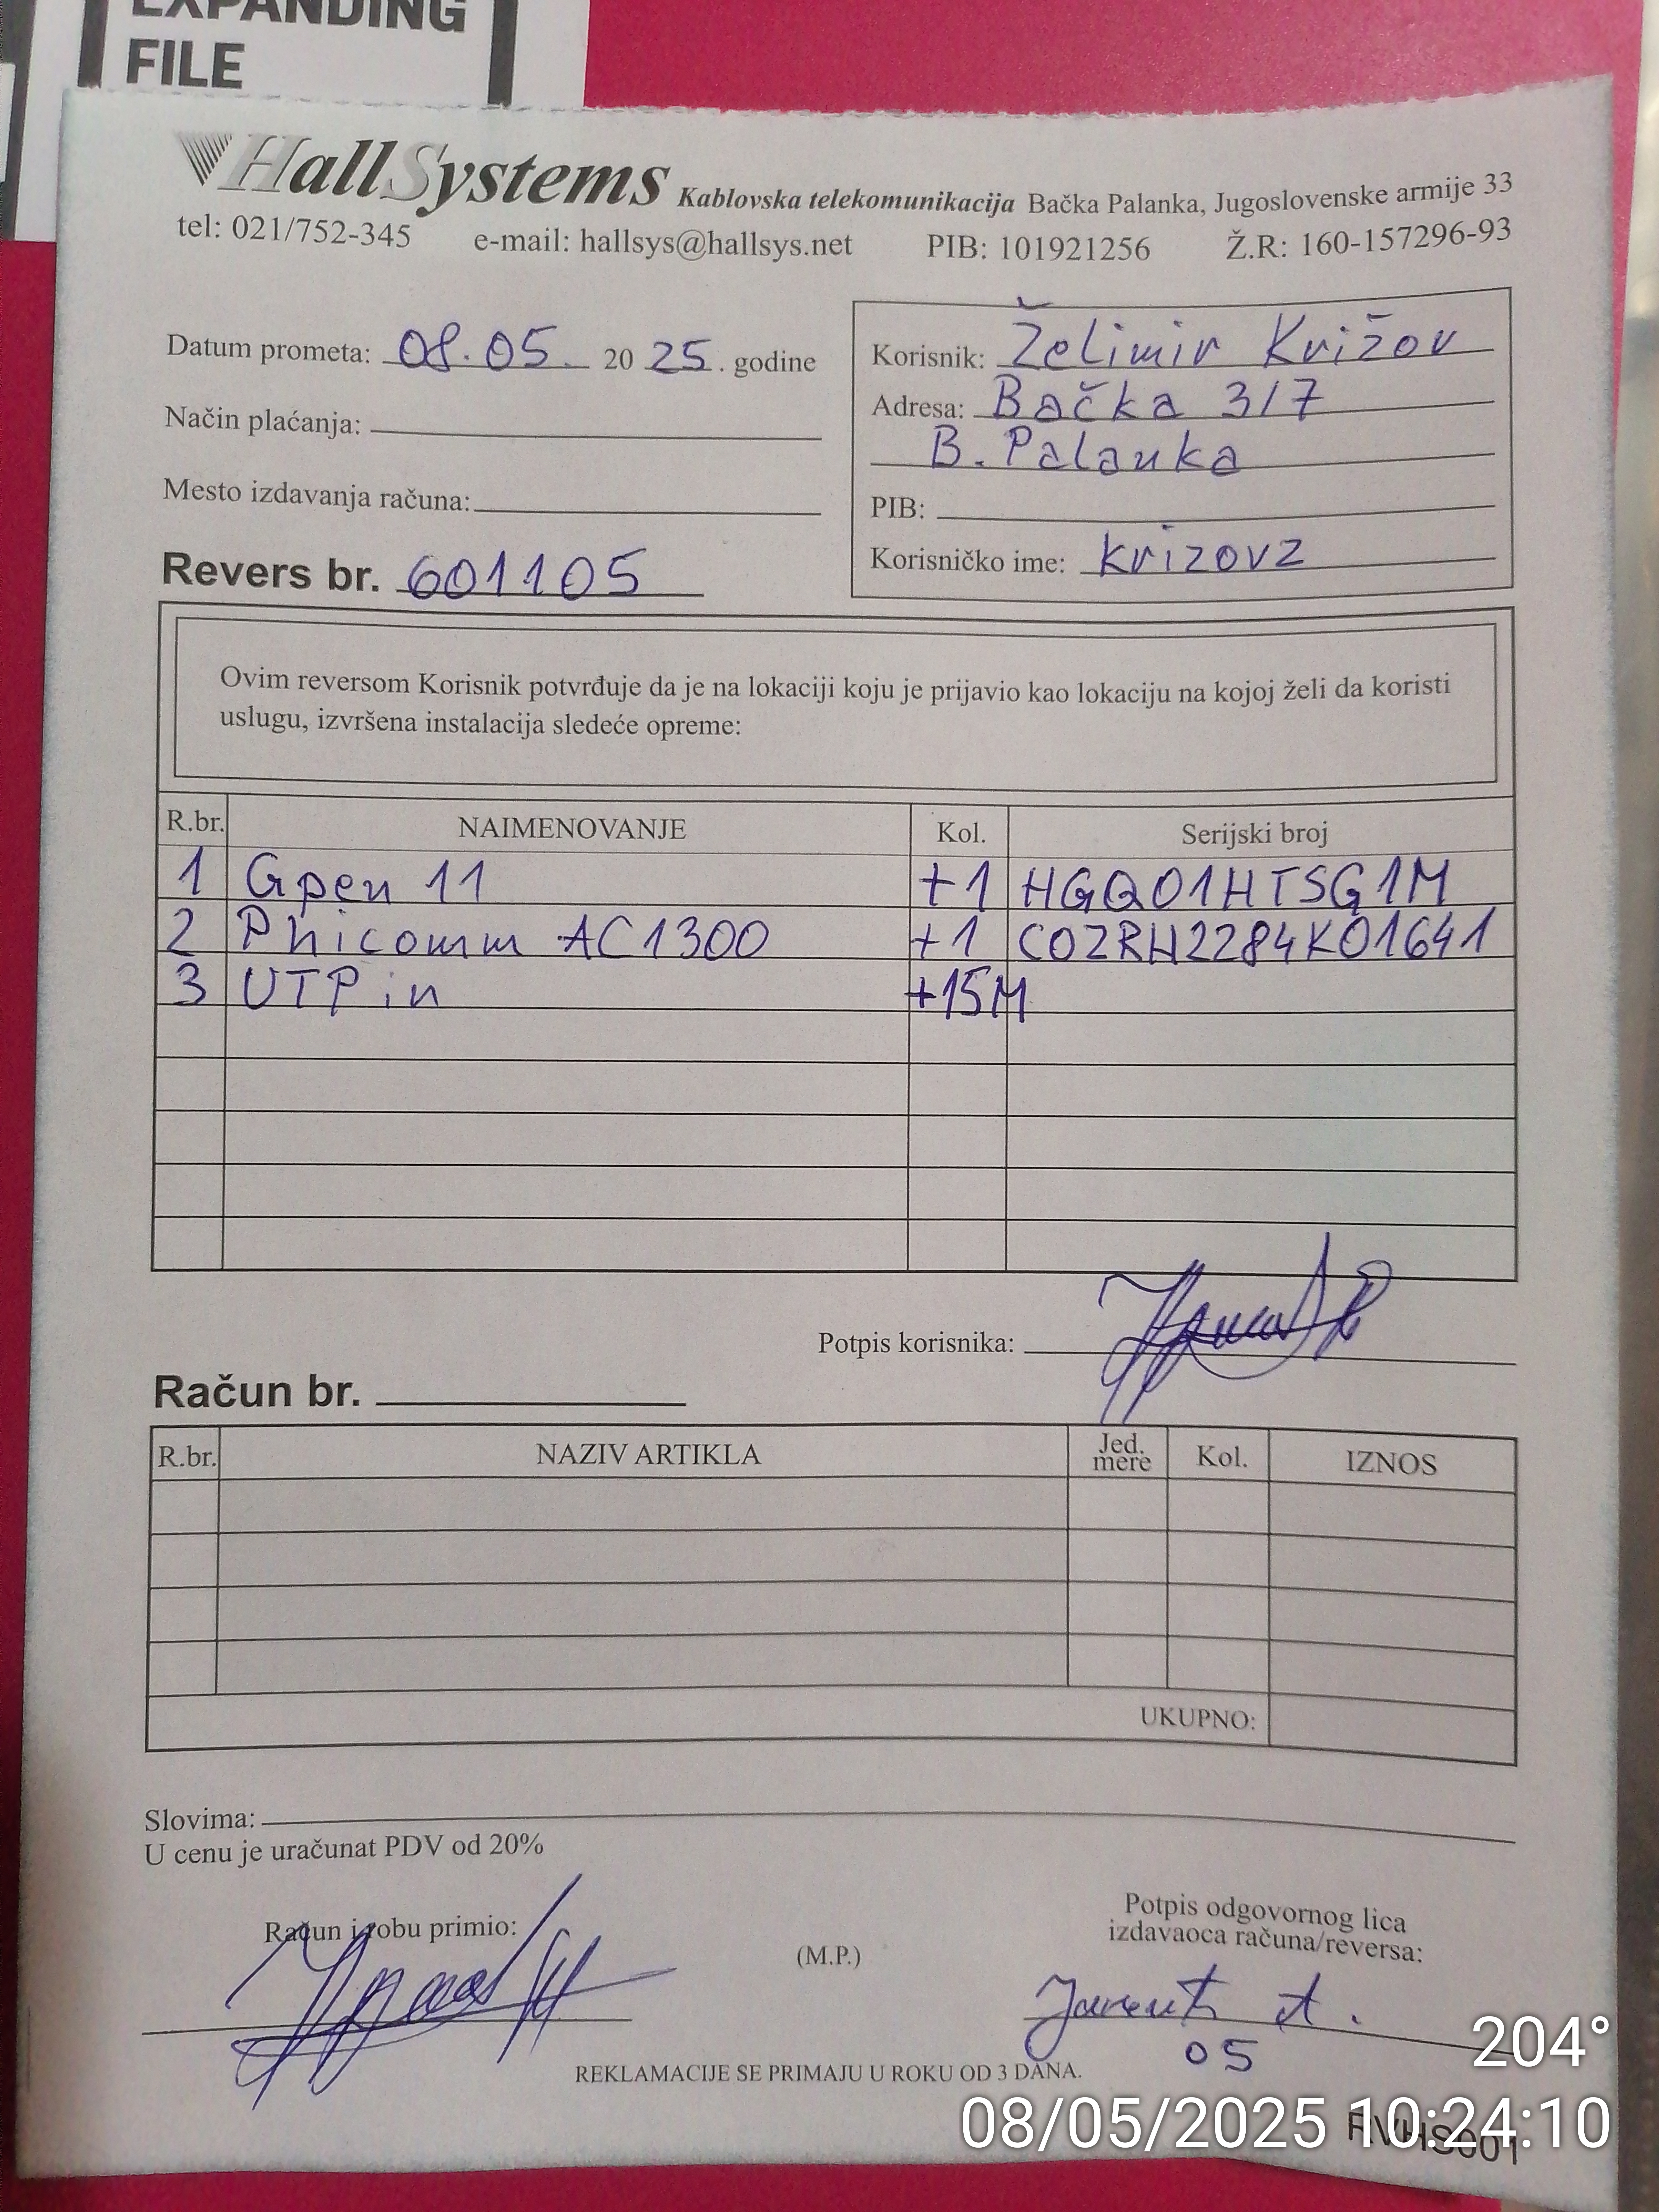 EXPANDING
FILE
HallSystems Kablovska telekomunikacija Bačka Palanka, Jugoslovenske armije 33
tel: 021/752-345 e-mail: hallsys@hallsys.net PIB: 101921256 Ž.R: 160-157296-93
Datum prometa: 08.05. 2025. godine
Način plaćanja:
Mesto izdavanja računa:
Revers br. 601105
Korisnik: Želimir Križov
Adresa: Bačka 3/7
B. Palanka
PIB:
Korisničko ime: krizovz
Ovim reversom Korisnik potvrđuje da je na lokaciji koju je prijavio kao lokaciju na kojoj želi da koristi
uslugu, izvršena instalacija sledeće opreme:
R.br. NAIMENOVANJE Kol. Serijski broj
1 Gpen 11 +1 HGQ01HTSG1M
2 Phicomm AC1300 +1 COZRH2284K01641
3 UTP in +15M
Potpis korisnika:
Račun br.
R.br. NAZIV ARTIKLA Jed. mere Kol. IZNOS
UKUPNO:
Slovima:
U cenu je uračunat PDV od 20%
Račun i robu primio:
(M.P.)
Potpis odgovornog lica
izdavaoca računa/reversa:
05
REKLAMACIJE SE PRIMAJU U ROKU OD 3 DANA.
204°
08/05/2025 10:24:10
RVHS001